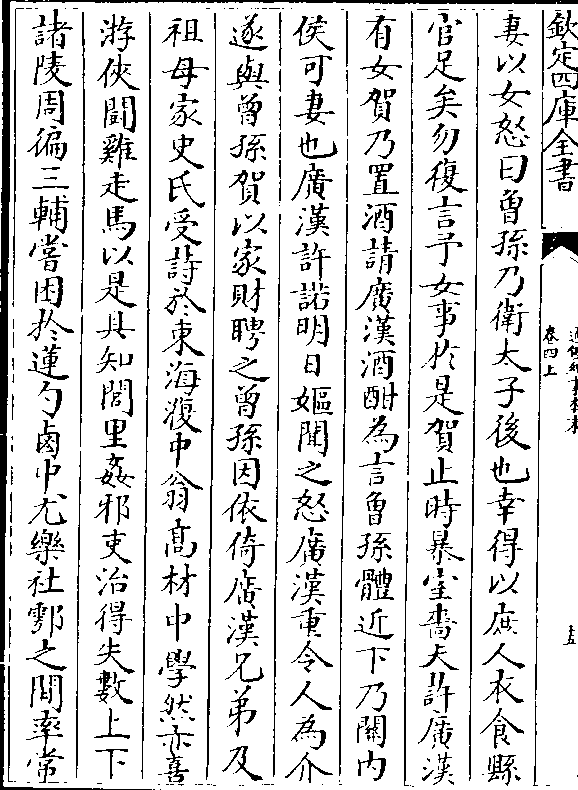 欽定四庫全書
卷四上
妻以女怒曰曾孫乃衛太子後也幸得以庶人衣食縣
官足矣勿復言予女事於是賀止時暴室嗇夫許廣漢
有女賀乃置酒請廣漢酒酣為言曾孫體近下乃關内
侯可妻也廣漢許諾明日嫗聞之怒廣漢重令人為介
遂與曾孫賀以家財聘之曾孫因依倚廣漢兄弟及
祖母家史氏受詩於東海澓中翁髙材中學然亦喜
游俠鬭雞走馬以是具知閭里姦邪吏治得失數上下
諸陵周徧三輔嘗困於蓮勺鹵中尤樂社鄠之間率常